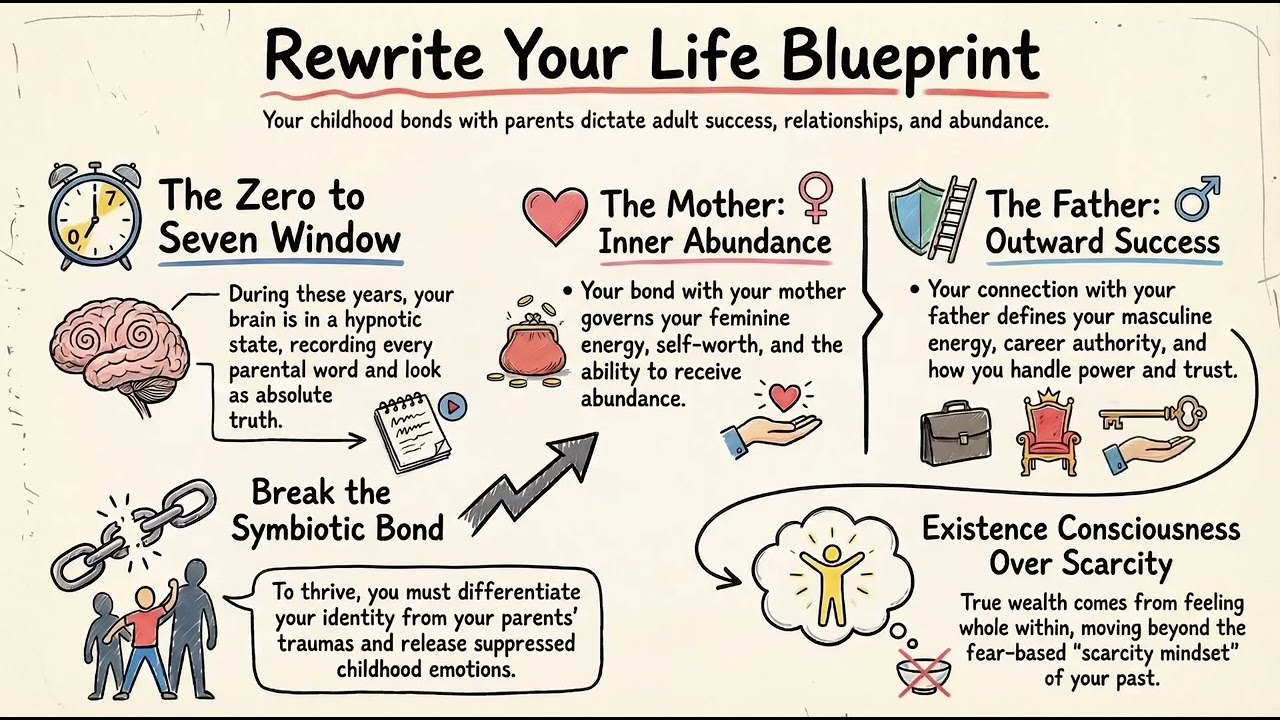 Rewrite Your Life Blueprint
Your childhood bonds with parents dictate adult success, relationships, and abundance.
The Zero to
Seven Window
0
7
During these years, your
brain is in a hypnotic
state, recording every
parental word and look
as absolute
truth.
The Mother:
Inner Abundance
• Your bond with your mother
governs your feminine
energy, self-worth, and the
ability to receive
abundance.
The Father:
Outward Success
• Your connection with your
father defines your masculine
energy, career authority, and
how you handle power and trust.
Break the
Symbiotic Bond
To thrive, you must differentiate
your identity from your parents'
traumas and release suppressed
childhood emotions.
Existence Consciousness
Over Scarcity
True wealth comes from feeling
whole within, moving beyond the
fear-based "scarcity mindset"
of your past.